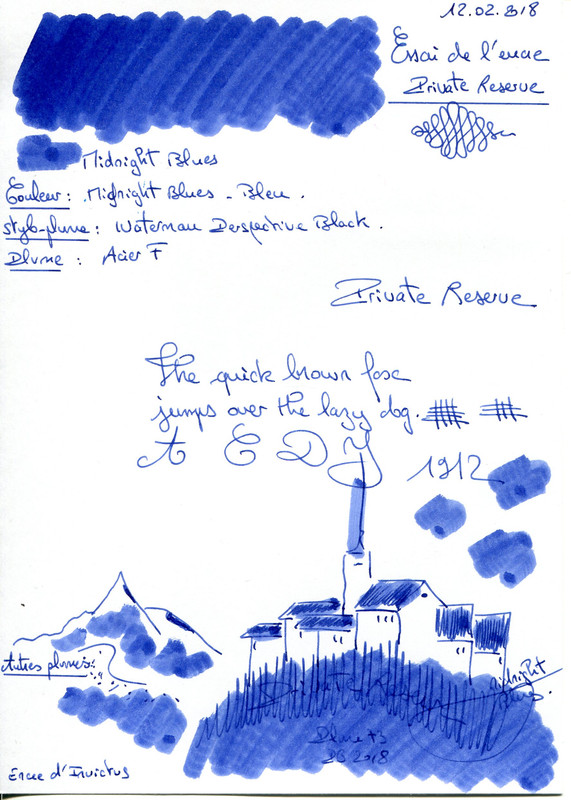 12.02.2018
Essai de l'encre
Private Reserve
Midnight Blues
Couleur : Midnight Blues - Bleu .
stylo-plume : Waterman Perspective Black .
Plume : Acier F
Private Reserve
The quick brown fox
jumps over the lazy dog.
A E D Y
1912
Autres plumes :
Private Reserve
midnight
Blues.
Plume F3
2018
Encre d'Invictus